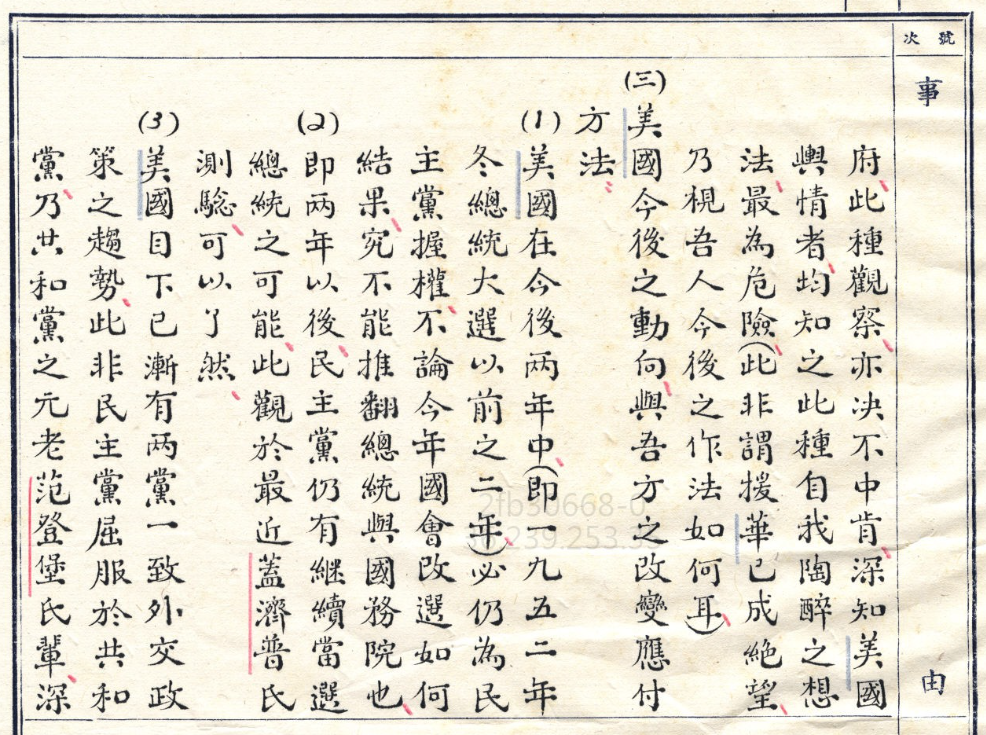 號次
事由
府、此種觀察、亦决不中肯、深知美國
輿情者、均知之此種自我陶醉之想
法、最為危險、(此非謂援華已成絕望、
乃視吾人今後之作法如何耳、)
(三)美國今後之動向、與吾方之改變應付
方法、
(1)美國在今後兩年中、(即一九五二年
冬總統大選以前之二年)、必仍為民
主黨握權、不論今年國會改選如何
結果、究不能推翻總統與國務院也、
(2)即兩年以後、民主黨仍有継續當選
總統之可能、此觀於最近蓋濟普氏
測騐、可以了然、
(3)美國目下已漸有兩黨一致外交政
策之趨勢、此非民主黨屈服於共和
黨、乃共和黨之元老范登堡氏輩、深
2fb30668-0